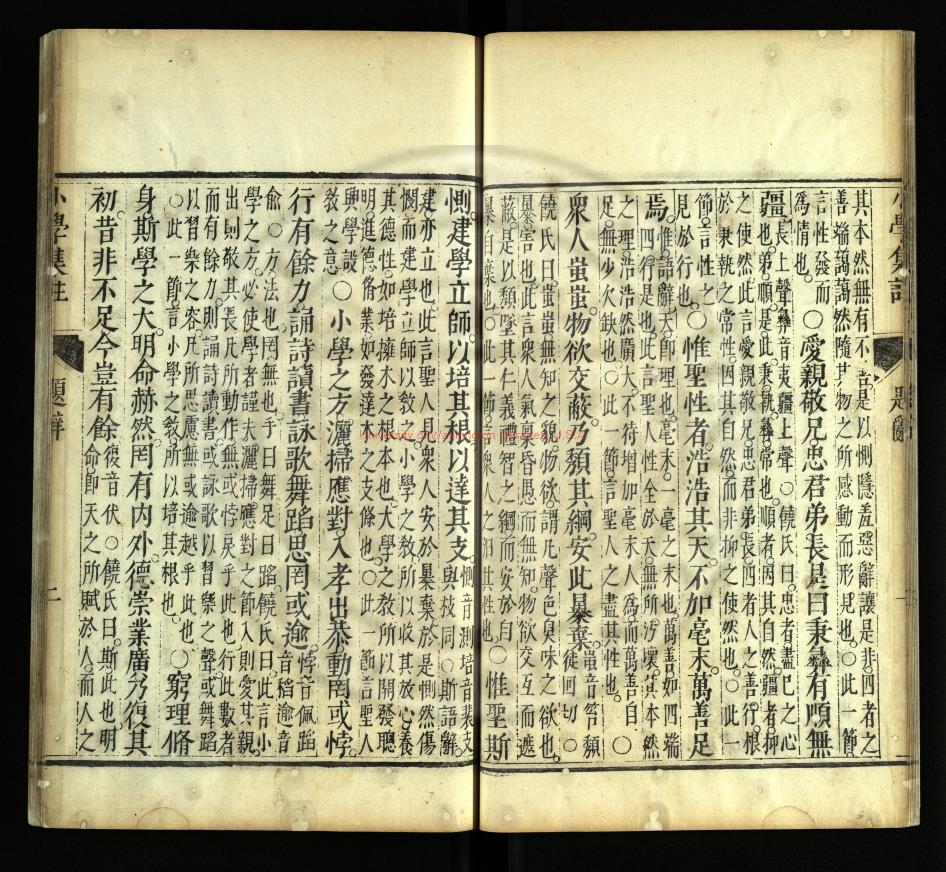 小學集註
題辭
一
其本然無有不善是以惻隱羞惡辭讓是非四者之
善端藹藹然隨其物之所感動而形見也○此一節
言性發而
為情也
○愛親敬兄忠君弟長是曰秉彝有順無
疆
長上聲彝音夷疆上聲○饒氏曰忠者盡己之心
也弟順是此秉執彝常也順者因其自然疆者抑
之使然此言愛親敬兄忠君弟長四者人之善行根
於秉執之常性因其自然而非抑之使然也○此一
節言性之
見於行也
○惟聖性者浩浩其天不加毫末萬善足
焉
惟語辭天即理也毫末一毫之末也萬善如四端
四行是也此言聖人性全於天無所汚壞其本然
之理浩浩然廣大不待增加毫末人為而萬善自
足無少欠缺也○此一節言聖人之盡其性也
○
眾人蚩蚩物欲交蔽乃頹其綱安此暴棄
蚩音笞頹
徒回切○
饒氏曰蚩蚩無知之貌物欲謂凡聲色臭味之欲也
暴害也此言眾人氣稟昏愚而無知物欲交互而遮
蔽是以頹墜其仁義禮智之綱而安於自
暴自棄也○此一節言眾人之汩其性也
○惟聖斯
惻建學立師以培其根以達其支
惻音測培音裴支
與枝同○斯語辭
建亦立也此言聖人見眾人安於暴棄於是惻然傷
憫而建學立師以敎之小學之敎所以收其放心養
其德性如培擁木之根本也大學之敎所以開發聰
明進德脩業如發達木之支條也○此一節言聖人
興學設
敎之意
○小學之方灑掃應對入孝出恭動罔或悖
行有餘力誦詩讀書詠歌舞蹈思罔或逾
悖音佩蹈
音稻逾音
俞○方法也罔無也手曰舞足曰蹈饒氏曰此言小
學之方必使學者謹夫灑掃應對之節入則愛其親
出則敬其長凡所動作無或悖戾乎此也行此數者
而有餘力則誦詩讀書或詠歌以習樂之聲或舞蹈
以習樂之容凡所思慮無或逾越乎此也
○此一節言小學之敎所以培其根也
○窮理脩
身斯學之大明命赫然罔有内外德崇業廣乃復其
初昔非不足今豈有餘
復音伏○饒氏曰斯此也明
命節天之所賦於人而人之
小學集註
題辭
二